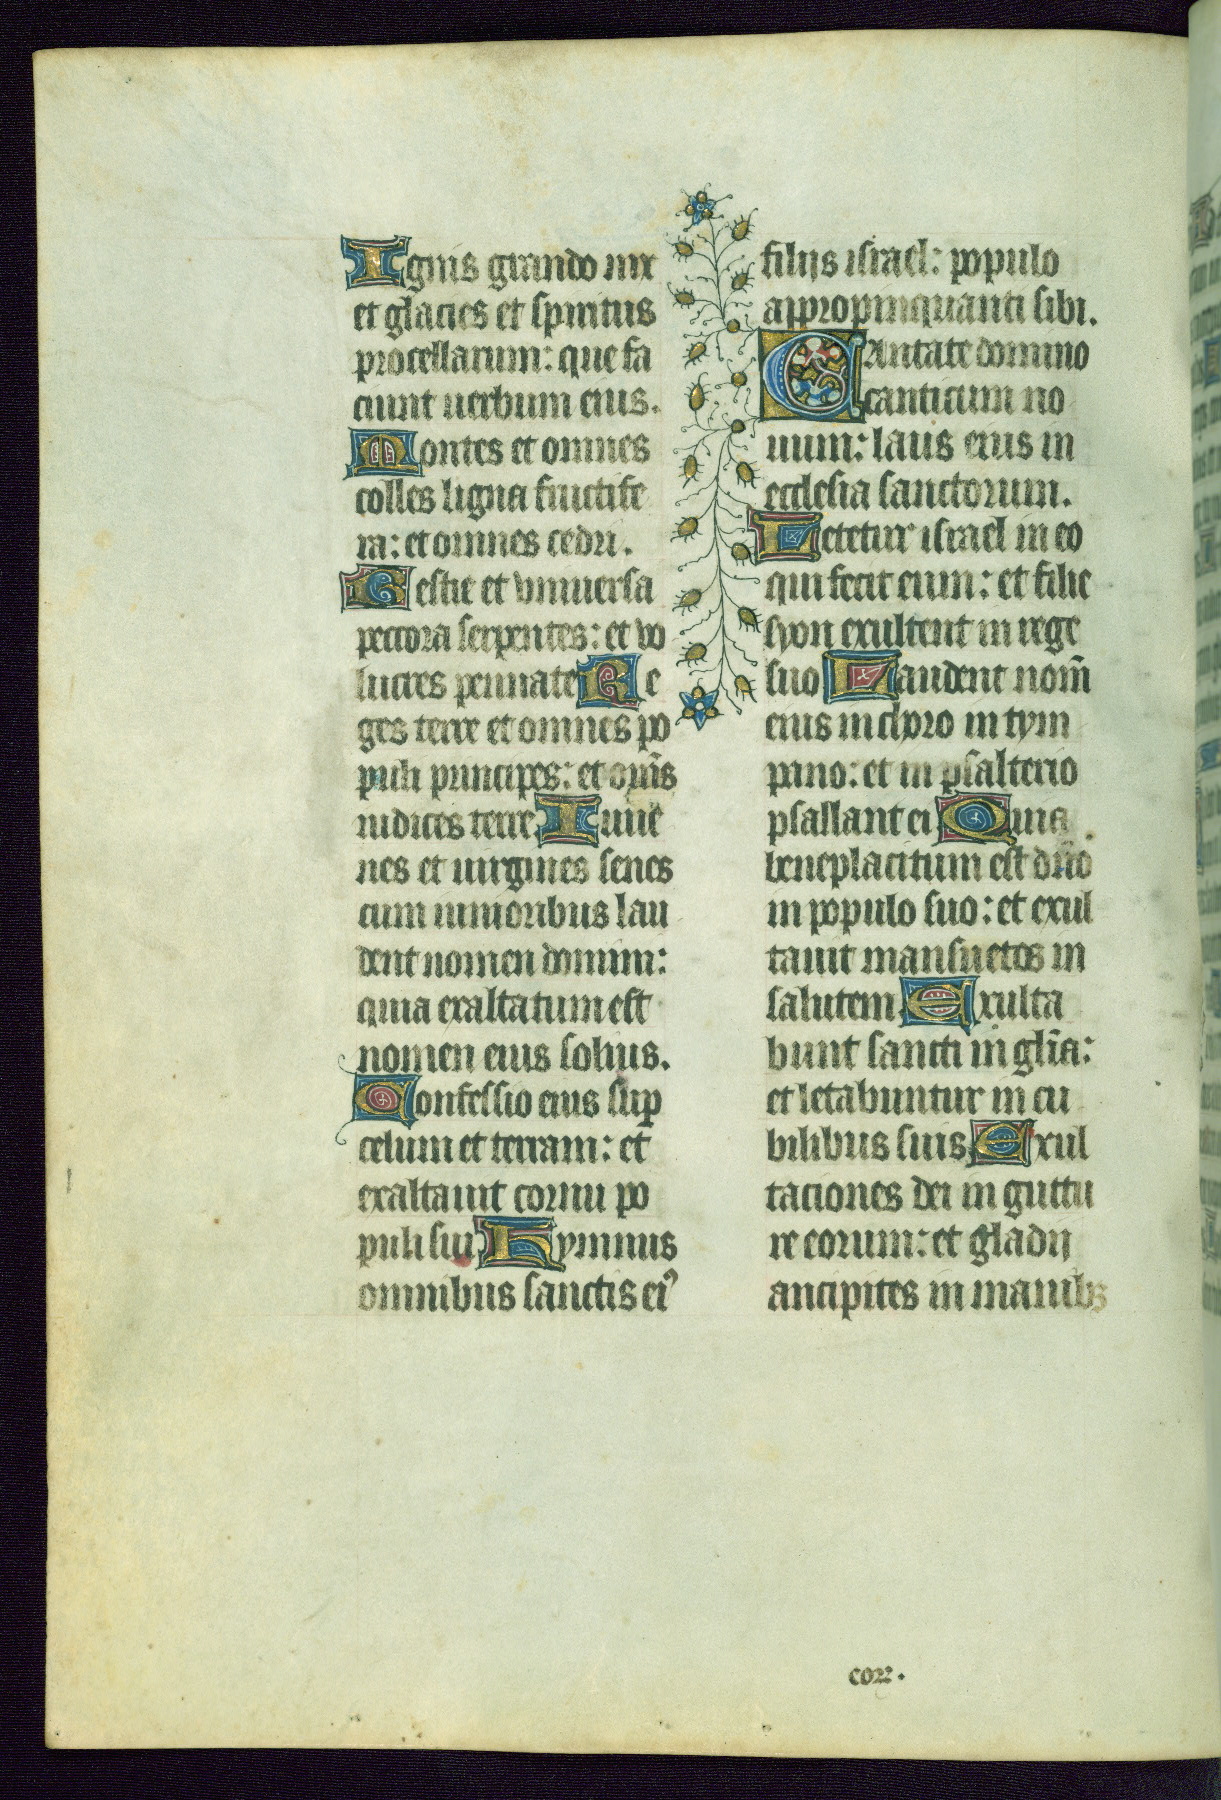 Ignis grando nix
et glacies et spiritus
procellarum: que fa
ciunt uerbum eius.
Montes et omnes
colles ligna fructife
ra: et omnes cedri.
Bestie et vniuersa
peccora serpentes: et vo
lucres pennate Re
ges terre et omnes po
puli principes: et om̄s
iudices terre Iuue
nes et uirgines senes
cum iunioribus lau
dent nomen domini:
quia exaltatum est
nomen eius solius.
Confessio eius sup
celum et terram: et
exaltauit cornu po
puli sui Hymnus
omnibus sanctis ei⁹
filijs israel: populo
appropinquanti sibi.
Cantate domino
canticum no
uum: laus eius in
ecclesia sanctorum.
Letetur israel in eo
qui fecit eum: et filie
syon exultent in rege
suo Laudent nom̄
eius in choro in tym
pano: et in psalterio
psallant ei Quia
beneplacitum est dn̄o
in populo suo: et exul
tauit mansuetos in
salutem Exulta
bunt sancti in gl̄ia:
et letabuntur in cu
bilibus suis Exul
taciones dei in guttu
re eorum: et gladij
ancipites in manibꝫ
corr.